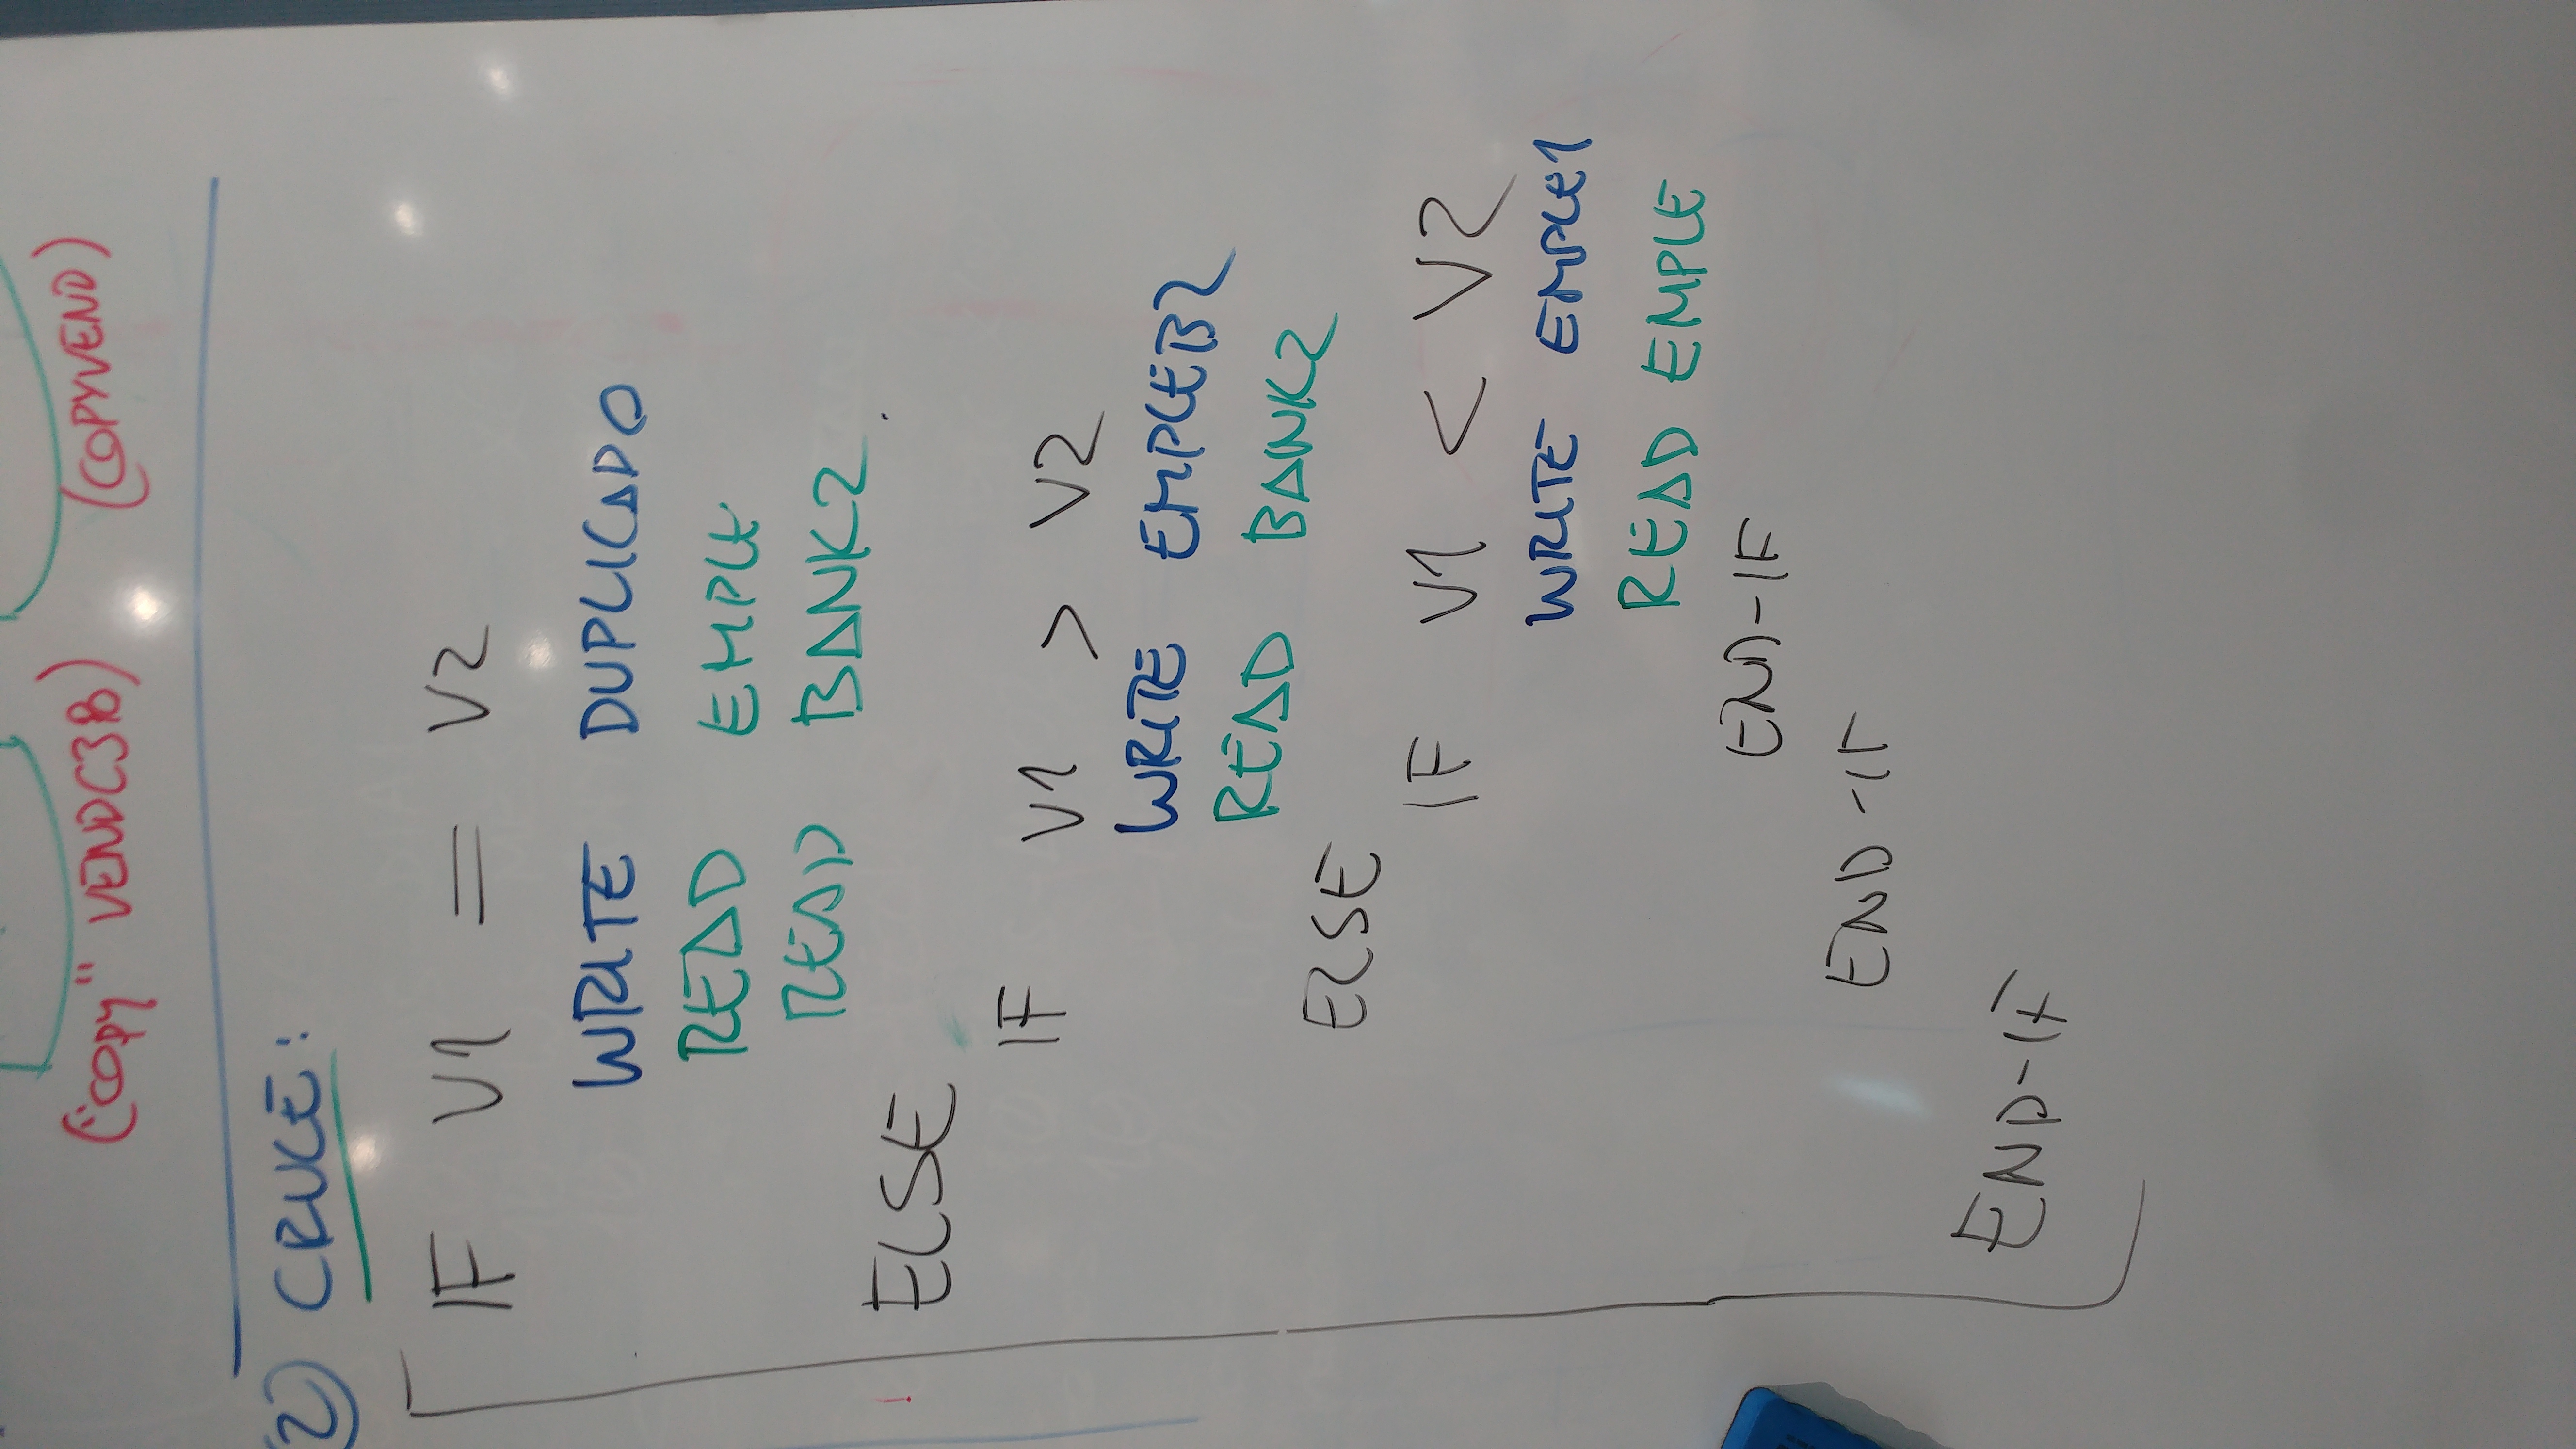 ("COPY" VENDC3B) (COPYVEND)
2) CRUCE:
IF V1 = V2
WRITE DUPLICADO
READ EMPLE
READ BANK2.
ELSE
IF V1 > V2
WRITE EMPLEB2
READ BANK2
ELSE
IF V1 < V2
WRITE EMPLE1
READ EMPLE
END-IF
END-IF
END-IF